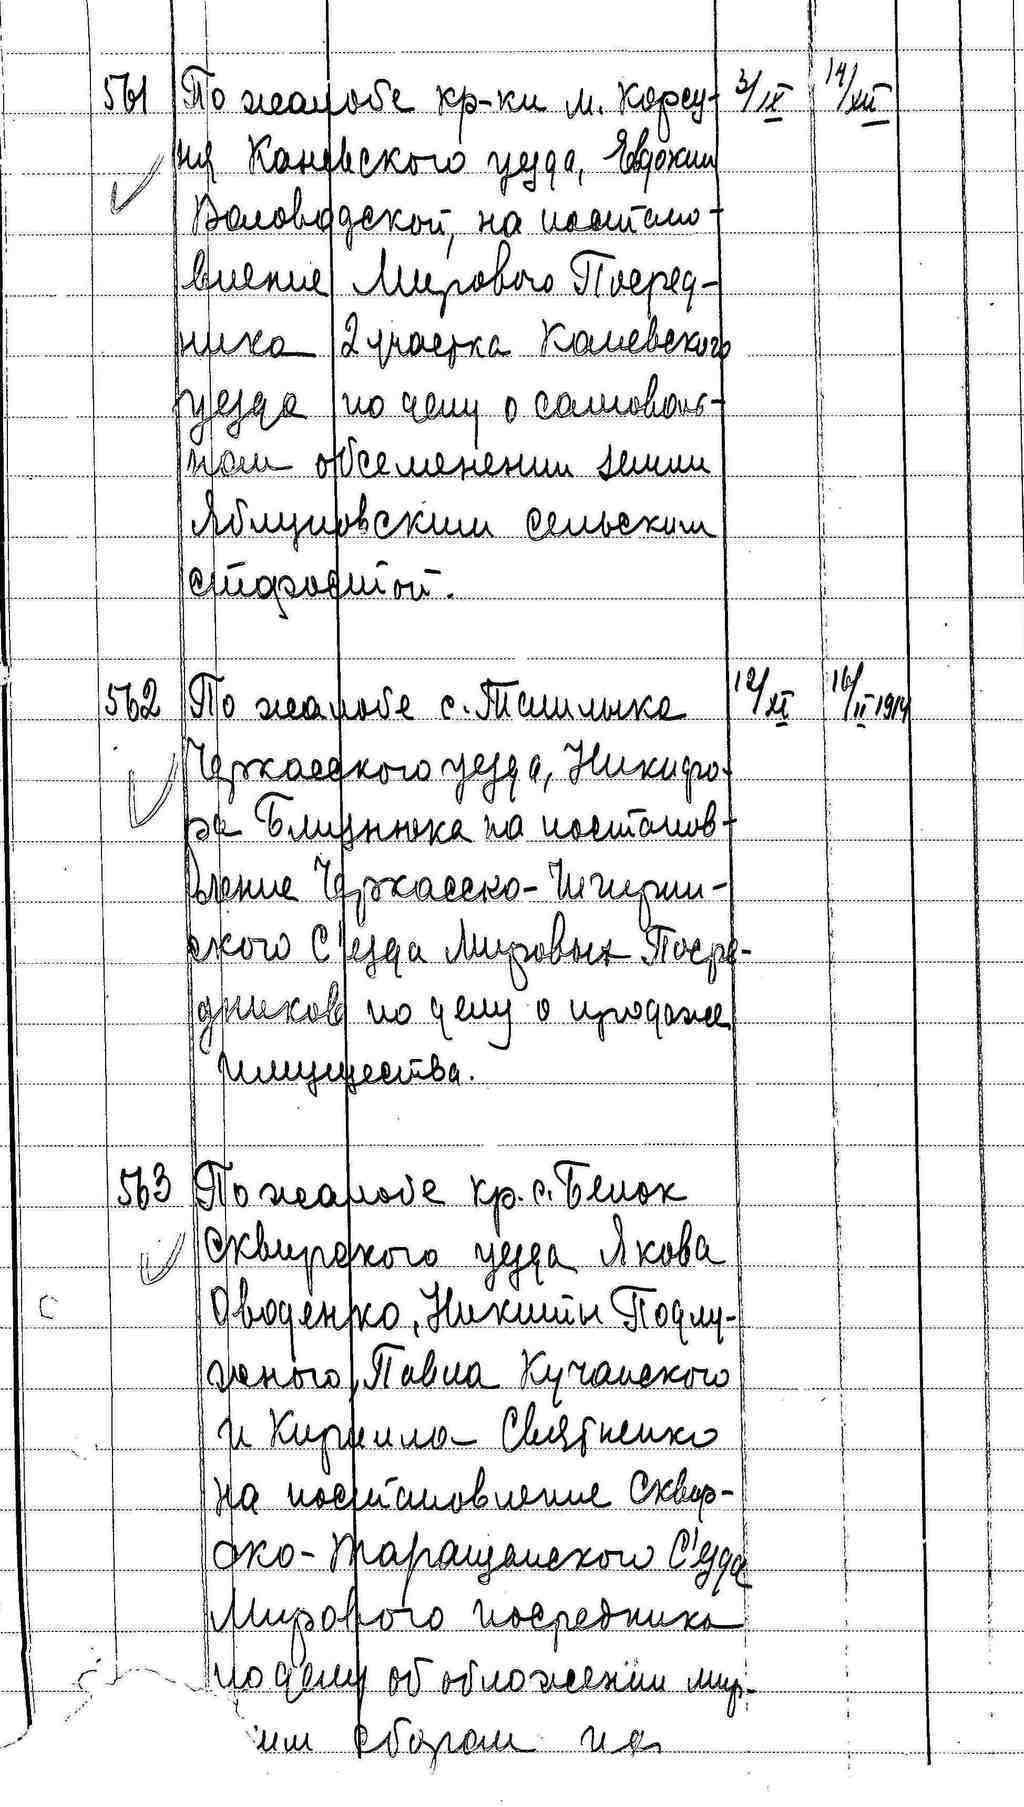 561 По жалобе кр-ки м. Корсу- 3/IX 14/XII
ня Каневского уезда, Евдокии
Воловодской, на постано-
вление Мирового Посред-
ника 2 участка Каневского
уезда по делу о самоволь-
ном обсеменении земли
Яблуновским сельским
старостой.
562 По жалобе с. Ташлыка 12/XI 16/II 1914
Черкасского уезда, Никифо-
ра Близнюка на постанов-
вление Черкасско-Чигирин-
ского С'езда Мировых Посре-
дников по делу о продаже
имущества.
563 По жалобе кр. с. Белок
Сквирского уезда Якова
Оводенко, Никиты Подлу-
жного, Павла Кучанского
и Кирилла Святненко
на постановление Сквир-
ско-Таращанского С'езда
Мирового посредника
по делу об обложении мир-
им сбором на